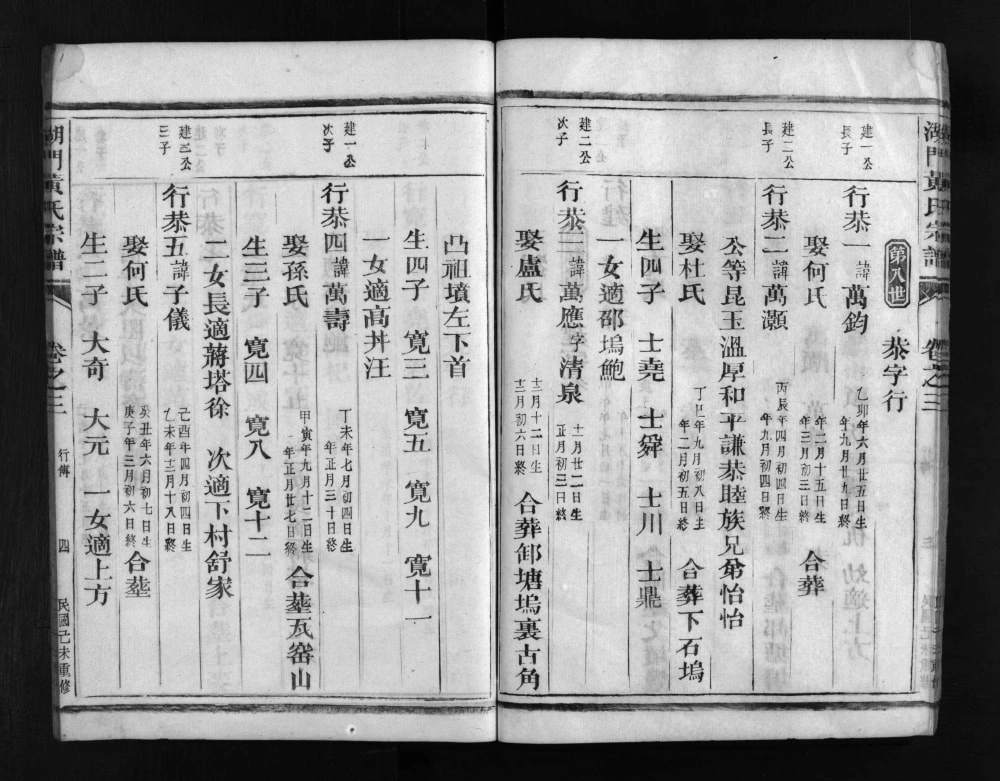 湖門黃氏宗譜 卷之三
第八世 恭字行
建一公長子
行恭一 諱萬鈞 乙卯年六月廿五日生 年九月廿九日終
娶何氏 年二月十五日生 年三月初三日終 合葬
建二公長子
行恭二 諱萬灝 丙辰年四月初四日生 年九月初四日終
公等昆玉溫厚和平謙恭睦族兄弟怡怡
娶杜氏 丁巳年九月初八日生 年二月初五日終 合葬下石塢
生四子 士堯 士舜 士川 士鼎
一女適邵塢鮑
建二公次子
行恭三 諱萬應字清泉 十一月廿二日生 正月初三日終
娶盧氏 十二月十二日生 十二月初六日終 合葬卸塘塢裏古角
凸祖墳左下首
生四子 寬三 寬五 寬九 寬十一
一女適高丼汪
建一公次子
行恭四 諱萬壽 丁未年七月初四日生 年正月三十日終
娶孫氏 甲寅年九月十二日生 年正月廿七日終 合塟瓦窰山
生三子 寬四 寬八 寬十二
二女長適蔣塔徐 次適下村舒家
建二公三子
行恭五 諱子儀 己酉年四月初四日生 乙未年十二月十八日終
娶何氏 癸丑年六月初七日生 庚子年三月初六日終 合塟
生二子 大奇 大元 一女適上方
湖門黃氏宗譜 卷之三 行傳 四 民國己未重修